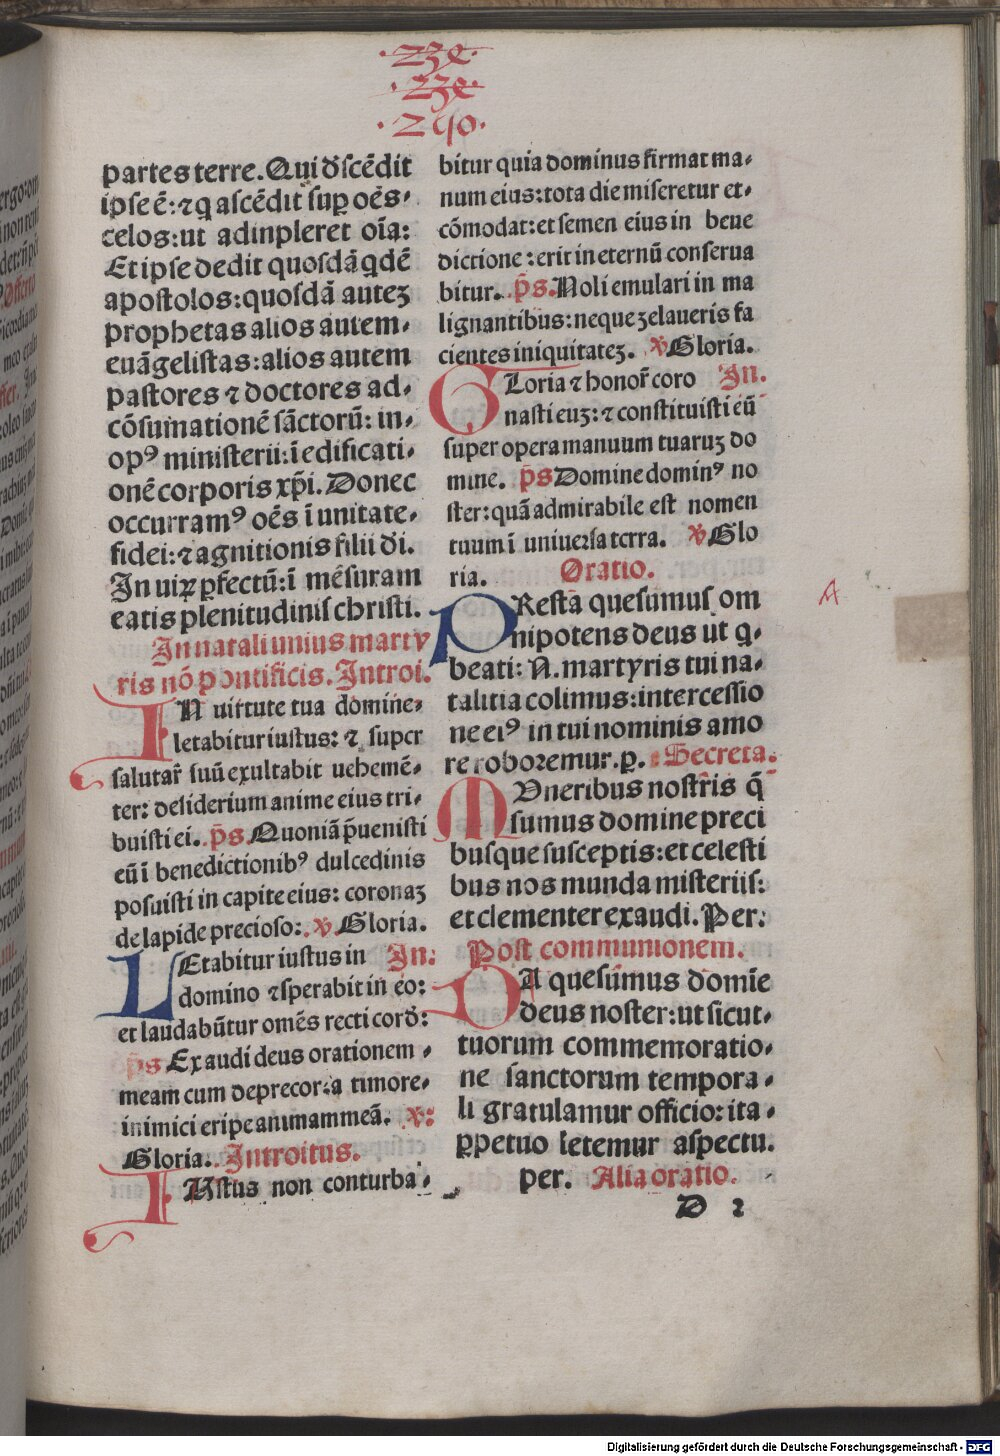 ·23e·
·23e·
·240·
partes terre. Qui dſcēdit
ipſe ē: ⁊ q aſcēdit ſuꝑ oēs·
celos: ut adinpleret oīa:
Et ipſe dedit quoſdā qdē
apoſtolos: quoſdā autez
prophetas alios autem·
euāgeliſtas: alios autem
paſtores ⁊ doctores ad·
cōſumationē ſāctorū: in·
opꝰ miniſterii: ī edificati·
onē corporis xp̄i. Donec
occurramꝰ oēs ī unitate·
fidei: ⁊ agnitionis filii di.
In uiꝝ ꝑfectū: ī mēſuram
eatis plenitudiniſ chriſti.
In natali unius marty
ris nō pontificis. Introi.
IN uirtute tua domine·
letabitur iuſtus: ⁊ ſuper
ſalutar̄ ſuū exultabit uehemē·
ter: deſiderium anime eius tri·
buiſti ei. p̄s. Quoniā p̄ueniſti
eū ī benedictionibꝰ dulcedinis
poſuiſti in capite eius: coronaz
de lapide precioso: .℣. Gloria.
LEtabitur iuſtus in In:
domino ⁊ ſperabit in eo:
et laudabūtur omēs recti cord:
p̄s Exaudi deus orationem ·
meam cum deprecor: a timore·
inimici eripe animam meā. ℣:
Gloria. Introitus.
IUſtus non conturba·
bitur quia dominus firmat ma·
num eius: tota die miſeretur et·
cōmodat: et ſemen eius in beue
dictione : erit in eternū conſerua
bitur. p̄s. Noli emulari in ma
lignantibus: neque zelaueris fa
cientes iniquitatez. ℣ Gloria.
GLoria ⁊ honor̄ coro In.
naſti euz: ⁊ conſtituiſti eū
ſuper opera manuum tuaruz do
mine. p̄s Domine dominꝰ no
ſter: quā admirabile eſt nomen
tuum ī uniuerſa terra. ℣ Glo
ria. Oratio.
PReſta queſumuſ om
nipotens deus ut q·
beati: N. martyris tui na·
talitia colimus: interceſſio
ne eiꝰ in tui nominis amo
re roboremur. p. Secreta.
MUneribus noſtr̄is q̄
ſumus domine preci
buſque ſuſceptis: et celeſti
bus nos munda miſteriiſ:
et clementer exaudi. Per:
Poſt communionem.
DA queſumus domīe
deus noſter: ut ſicut·
tuorum commemoratio·
ne ſanctorum tempora·
li gratulamur officio: ita·
ꝑpetuo letemur aſpectu.
per. Alia oratio.
D 2
A
Digitalisierung gefördert durch die Deutsche Forschungsgemeinschaft - DFG